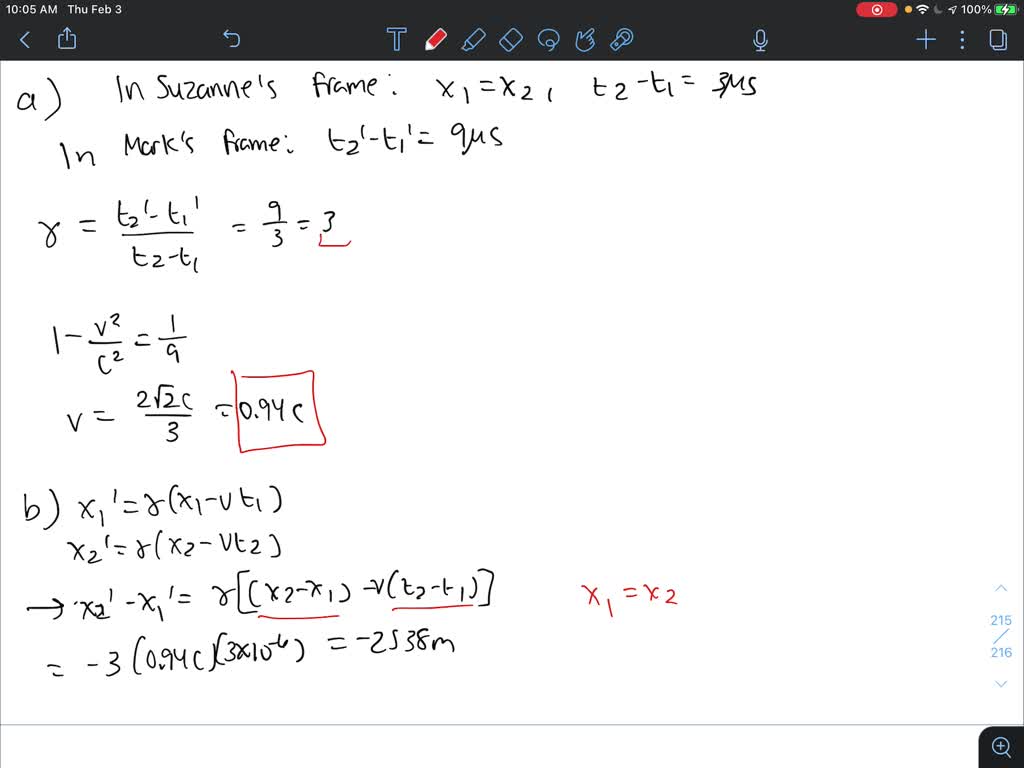 10:05 AM Thu Feb 3
100%
a) In Suzanne's frame: x₁ = x₂, t₂ - t₁ = 3μs
In Mark's frame: t₂' - t₁' = 9μs
γ = (t₂' - t₁')/(t₂ - t₁) = 9/3 = 3
1 - v²/c² = 1/9
v = 2√2c/3 = 0.94c
b) x₁' = γ(x₁ - vt₁)
x₂' = γ(x₂ - vt₂)
→ x₂' - x₁' = γ[(x₂ - x₁) - v(t₂ - t₁)] x₁ = x₂
= -3(0.94c)(3×10⁻⁶) = -2538m
215
/
216